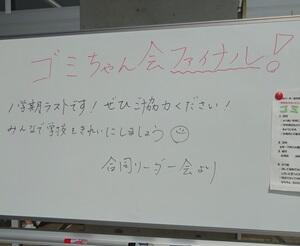 ゴミちゃん会ファイナル!
1学期ラストです!ぜひご協力ください!
みんなで学校をきれいにしましょう
合同リーダー会より